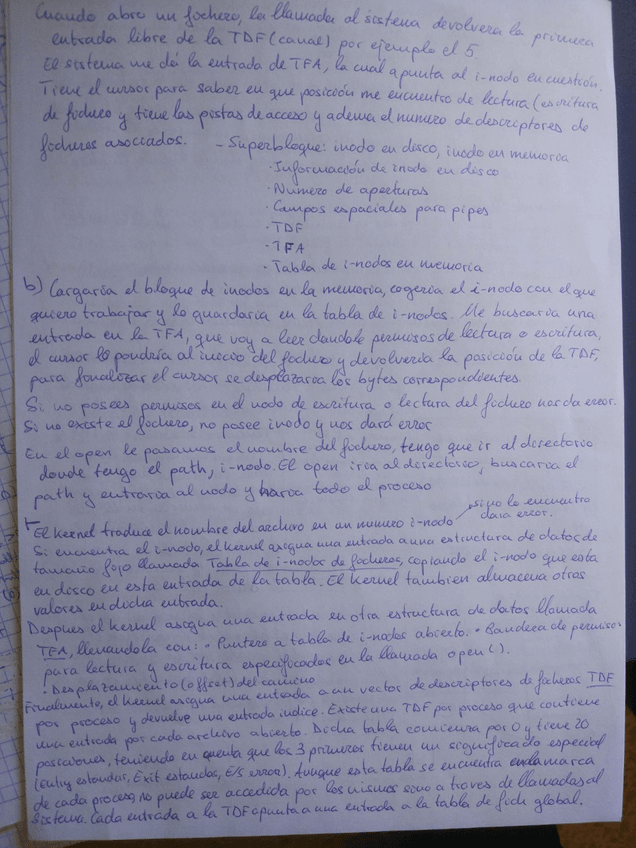 Cuando abro un fichero, la llamada al sistema devolvera la primera
entrada libre de la TDF (canal) por ejemplo el 5
El sistema me dá la entrada de TFA, la cual apunta al i-nodo en cuestión.
Tiene el cursor para saber en que posición me encuentro de lectura (escritura
de fichero y tiene las pistas de acceso y ademas el numero de descriptores de
ficheros asociados. - Superbloque: inodo en disco, inodo en memoria
· Información de inodo en disco
· Numero de aperturas
· Campos espaciales para pipes
· TDF
· TFA
· Tabla de i-nodos en memoria
b) Cargaría el bloque de inodos en la memoria, cogeria el i-nodo con el que
quiero trabajar y lo guardaria en la tabla de i-nodos. Me buscaria una
entrada en la TFA, que voy a leer dandole permisos de lectura o escritura,
el cursor lo pondría al inicio del fichero y devolveria la posición de la TDF,
para finalizar el cursor se desplazaria los bytes correspondientes.
Si no posees permisos en el nodo de escritura o lectura del fichero nos da error.
Si no existe el fichero, no posee inodo y nos dará error
En el open le pasamos el nombre del fichero, tengo que ir al directorio
donde tengo el path, i-nodo. El open iria al directorio, buscaria el
path y entraria al nodo y haria todo el proceso
El Kernel traduce el nombre del archivo en un numero i-nodo si no lo encuentra
dara error.
Si encuentra el i-nodo, el kernel asigna una entrada a una estructura de datos de
tamaño fijo llamada Tabla de i-nodos de ficheros, copiando el i-nodo que esta
en disco en esta entrada de la tabla. El Kernel tambien almacena otros
valores en dicha entrada.
Despues el kernel asigna una entrada en otra estructura de datos llamada
TFA, llenandola con: · Puntero a tabla de i-nodos abierto. · Bandera de permisos
para lectura y escritura especificados en la llamada open().
· Desplazamiento (offset) del camino
Finalmente, el kernel asigna una entrada a un vector de descriptores de ficheros TDF
por proceso y devuelve una entrada indice. Existe una TDF por proceso que contiene
una entrada por cada archivo abierto. Dicha tabla comienza por 0 y tiene 20
posiciones, teniendo en cuenta que los 3 primeros tienen un significado especial
(Entry estandar, Exit estandar, E/S error). Aunque esta tabla se encuentra marca
de cada proceso, no puede ser accedida por los mismos sino a traves de llamadas al
sistema. Cada entrada a la TDF apunta a una entrada a la tabla de fich global.